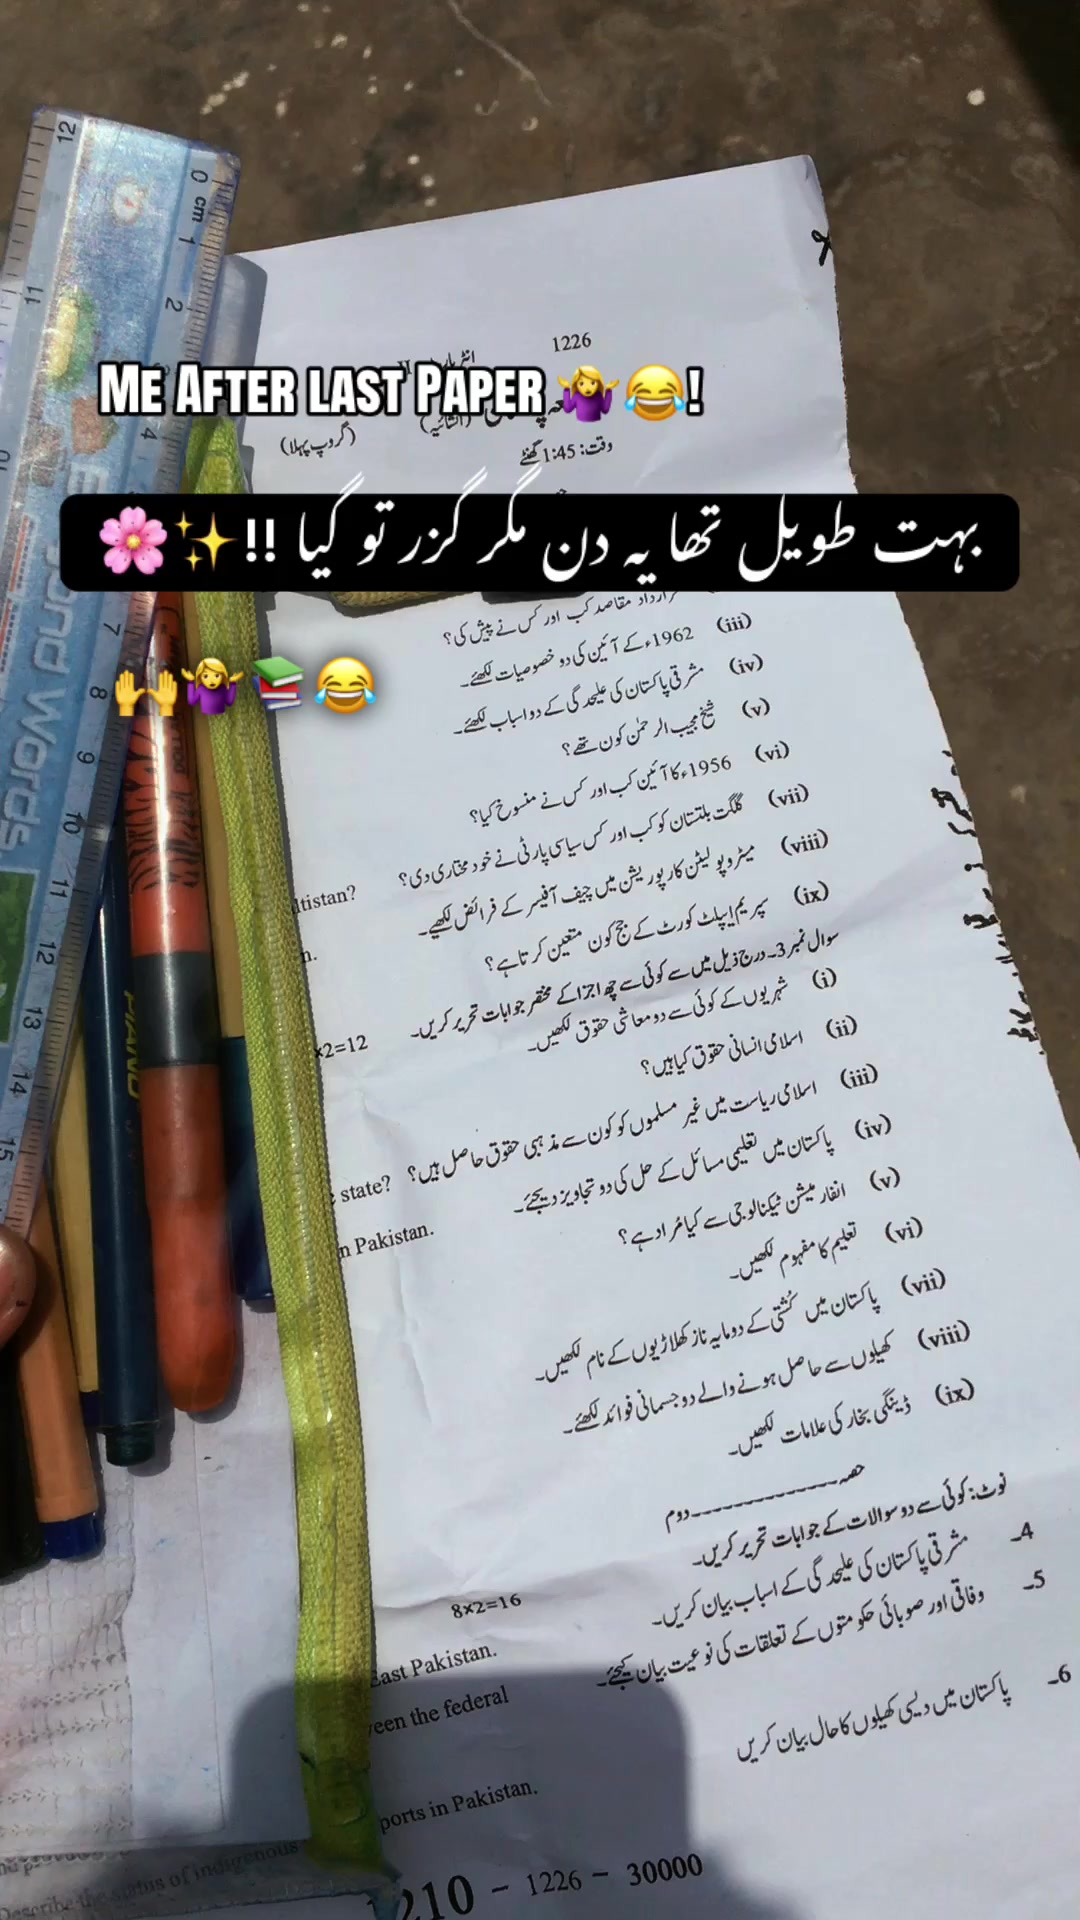 1226
ME AFTER LAST PAPER 🤷‍♀️😂!
(انشائیہ)
(گروپ پہلا)
وقت: 1:45 گھنٹے
بہت طویل تھا یہ دن مگر گزر تو گیا !!✨🌸
مقاصد کب اور کس نے پیش کی؟
(iii) 1962ء کے آئین کی دو خصوصیات لکھئے۔
🙌🤷‍♀️📚😂
(iv) مشرقی پاکستان کی علیحدگی کے دو اسباب لکھئے۔
(v) شیخ مجیب الرحمٰن کون تھے؟
(vi) 1956ء کا آئین کب اور کس نے منسوخ کیا؟
(vii) گلگت بلتستان کو کب اور کس سیاسی پارٹی نے خود مختاری دی؟
ltistan?
(viii) میٹروپولیٹن کارپوریشن میں چیف آفیسر کے فرائض لکھیے۔
n.
(ix) سپریم اپیلٹ کورٹ کے جج کون متعین کرتا ہے؟
سوال نمبر 3۔ درج ذیل میں سے کوئی سے چھ اجزا کے مختصر جوابات تحریر کریں۔
x2=12
(i) شہریوں کے کوئی سے دو معاشی حقوق لکھیں۔
(ii) اسلامی انسانی حقوق کیا ہیں؟
(iii) اسلامی ریاست میں غیر مسلموں کو کون سے مذہبی حقوق حاصل ہیں؟
state?
(iv) پاکستان میں تعلیمی مسائل کے حل کی دو تجاویز دیجئے۔
n Pakistan.
(v) انفارمیشن ٹیکنالوجی سے کیا مُراد ہے؟
(vi) تعلیم کا مفہوم لکھیں۔
(vii) پاکستان میں کُشتی کے دو مایہ ناز کھلاڑیوں کے نام لکھیں۔
(viii) کھیلوں سے حاصل ہونے والے دو جسمانی فوائد لکھئے۔
(ix) ڈینگی بخار کی علامات لکھیں۔
حصہ ـــــــــــــــ دوم
نوٹ: کوئی سے دو سوالات کے جوابات تحریر کریں۔
8x2=16
4۔ مشرقی پاکستان کی علیحدگی کے اسباب بیان کریں۔
East Pakistan.
5۔ وفاقی اور صوبائی حکومتوں کے تعلقات کی نوعیت بیان کیجئے۔
ween the federal
6۔ پاکستان میں دیسی کھیلوں کا حال بیان کریں
ports in Pakistan.
Describe the status of indigenous
210 - 1226 - 30000
12
11
0 cm 1 2 4 7 8 9 10 11 12 13 14 15
and words
PIANO